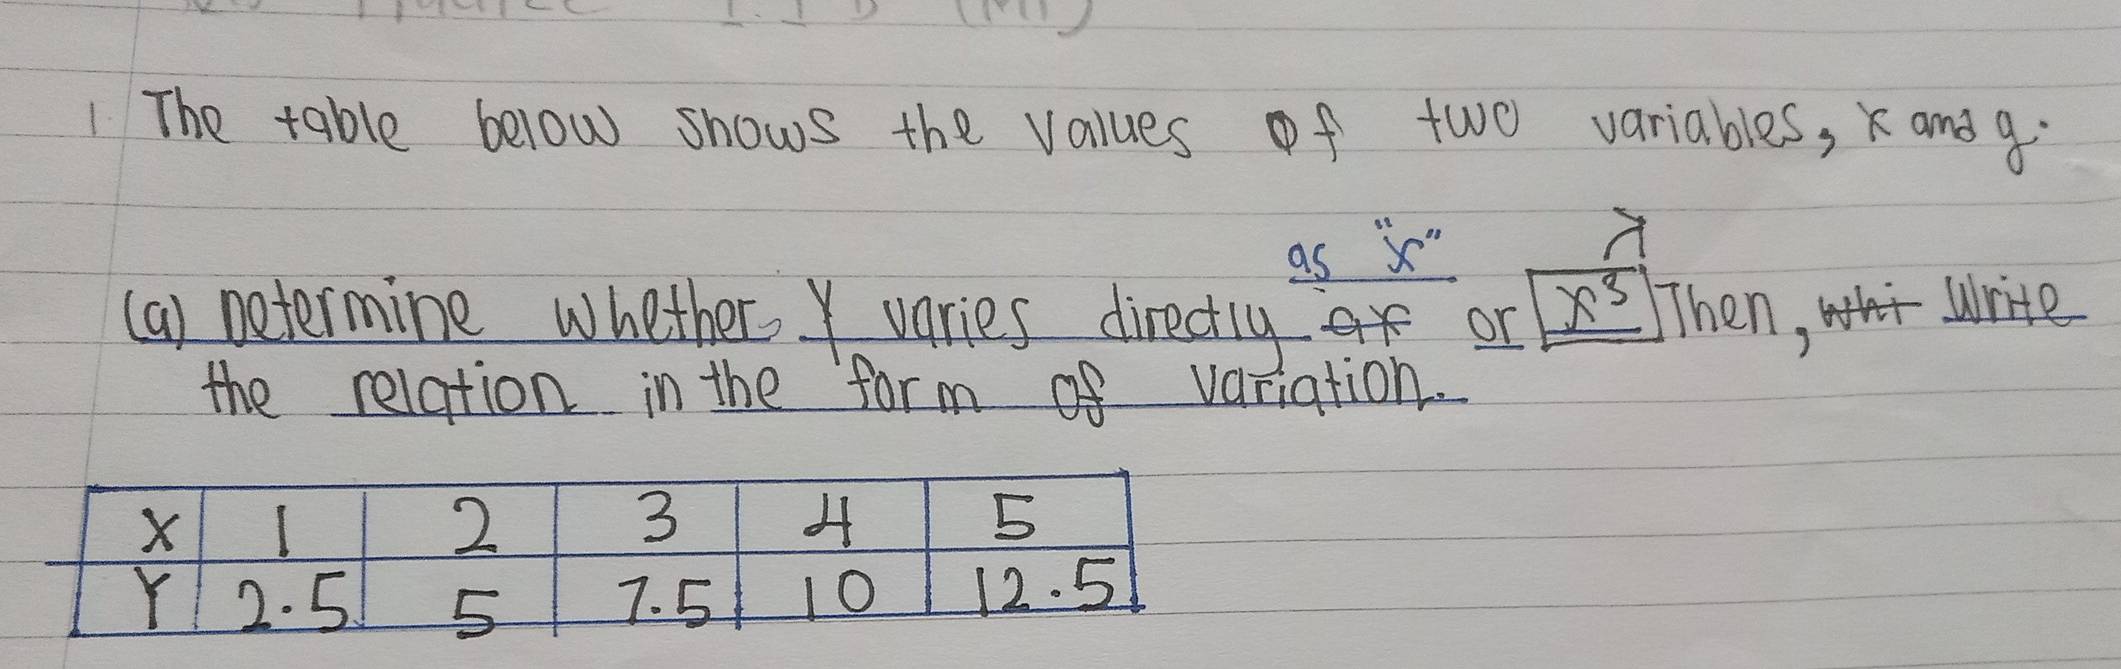 1. The table below shows the values of two variables, x and y.
as "x"
(a) Determine whether Y varies directly or x³ Then, Write
the relation in the form of variation.
X 1 2 3 4 5
Y 2.5 5 7.5 10 12.5